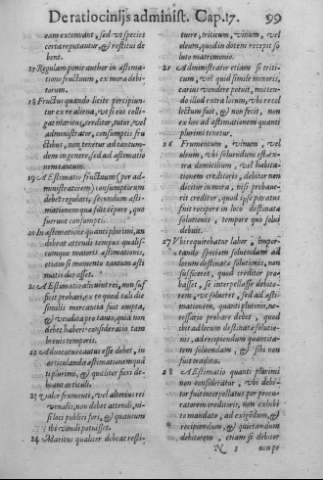 De ratiocinijs administ. Cap. 17. 99
eam extimant, sed ut species
certa reputatur, & restitui de
bent.
17 Regulam ponit author in æstima-
tione fructuum, ex mora debi-
torum.
18 Fructus quando licite percipiun-
tur ex re aliena, ut si eos colli-
gat maritus, creditor, tutor, vel
administrator, consumptis fru
ctibus, non tenetur ad tantum-
dem in genere, sed ad æstimatio
nem tantum.
19 Æstimatio fructuum (per ad-
ministratorem) consumptorum
debet regulari, secundum æsti-
mationem quæ fuit tempore, quo
fuerunt consumpti.
20 In æstimatione quanti plurimi, an
debeat attendi tempus qualis-
cumque maioris æstimationis,
etiam si momento tantum æsti
matio duraset.
21 Æstimatio ut vincat rei, non suf
ficit probare, ex eo quod tali die
similis mercantia fuit empta,
& vendita pro tanto, quia non
debet haberi consideratio tam
brevis temporis.
22 Advocatus cautus esse debet, in
articulando æstimationem quã
ti plurimi, & qualiter fieri de-
beant articuli.
23 Valor frumenti, vel alterius rei
venalis, non debet attendi, ni-
si loci publici fori, & quantum
ibi vendi potuisset.
24 Maritus qualiter debeat resti-
tuere, triticum, vinum, vel
oleum, quod in dotem recepit so
luto matrimonio.
25 Administrator etiam si triti-
cum, vel quid simile minoris,
carius vendere potuit, mitten-
do illud extra locum, ubi recol
lectum fuit, & non fecit, non
ex hoc ad æstimationem quanti
plurimi tenetur.
26 Frumentum, vinum, vel
oleum, ubi solvendum est, ex-
tra domicilium, vel habita-
tionem creditoris, debitor non
dicitur in mora, nisi probave-
rit creditor, quod ipse paratus
fuit recipere in loco destinatæ
solutionis, tempore quo solvi
debuit.
27 Ubi requirebatur labor, impor-
tando speciem solvendam ad
locum destinatæ solutionis, non
sufficeret, quod creditor pro-
basset, se interpellasse debito-
rem, ut solveret, sed ad æsti-
mationem, quanti plurimi, ne-
cessario probare debet, quod
ibit ad locum destinatæ solutio-
nis, ad recipiendum quantita-
tem solvendam, & sibi non
fuit tradita.
28 Æstimatio quanti plurimi
non consideratur, ubi debi-
tor fuit interpellatus per procu-
ratorem creditoris, non exhibi
to mandato, ad exigendum, &
recipiendum, & quietandum
debitorem, etiam si debitor
N 2 non pe